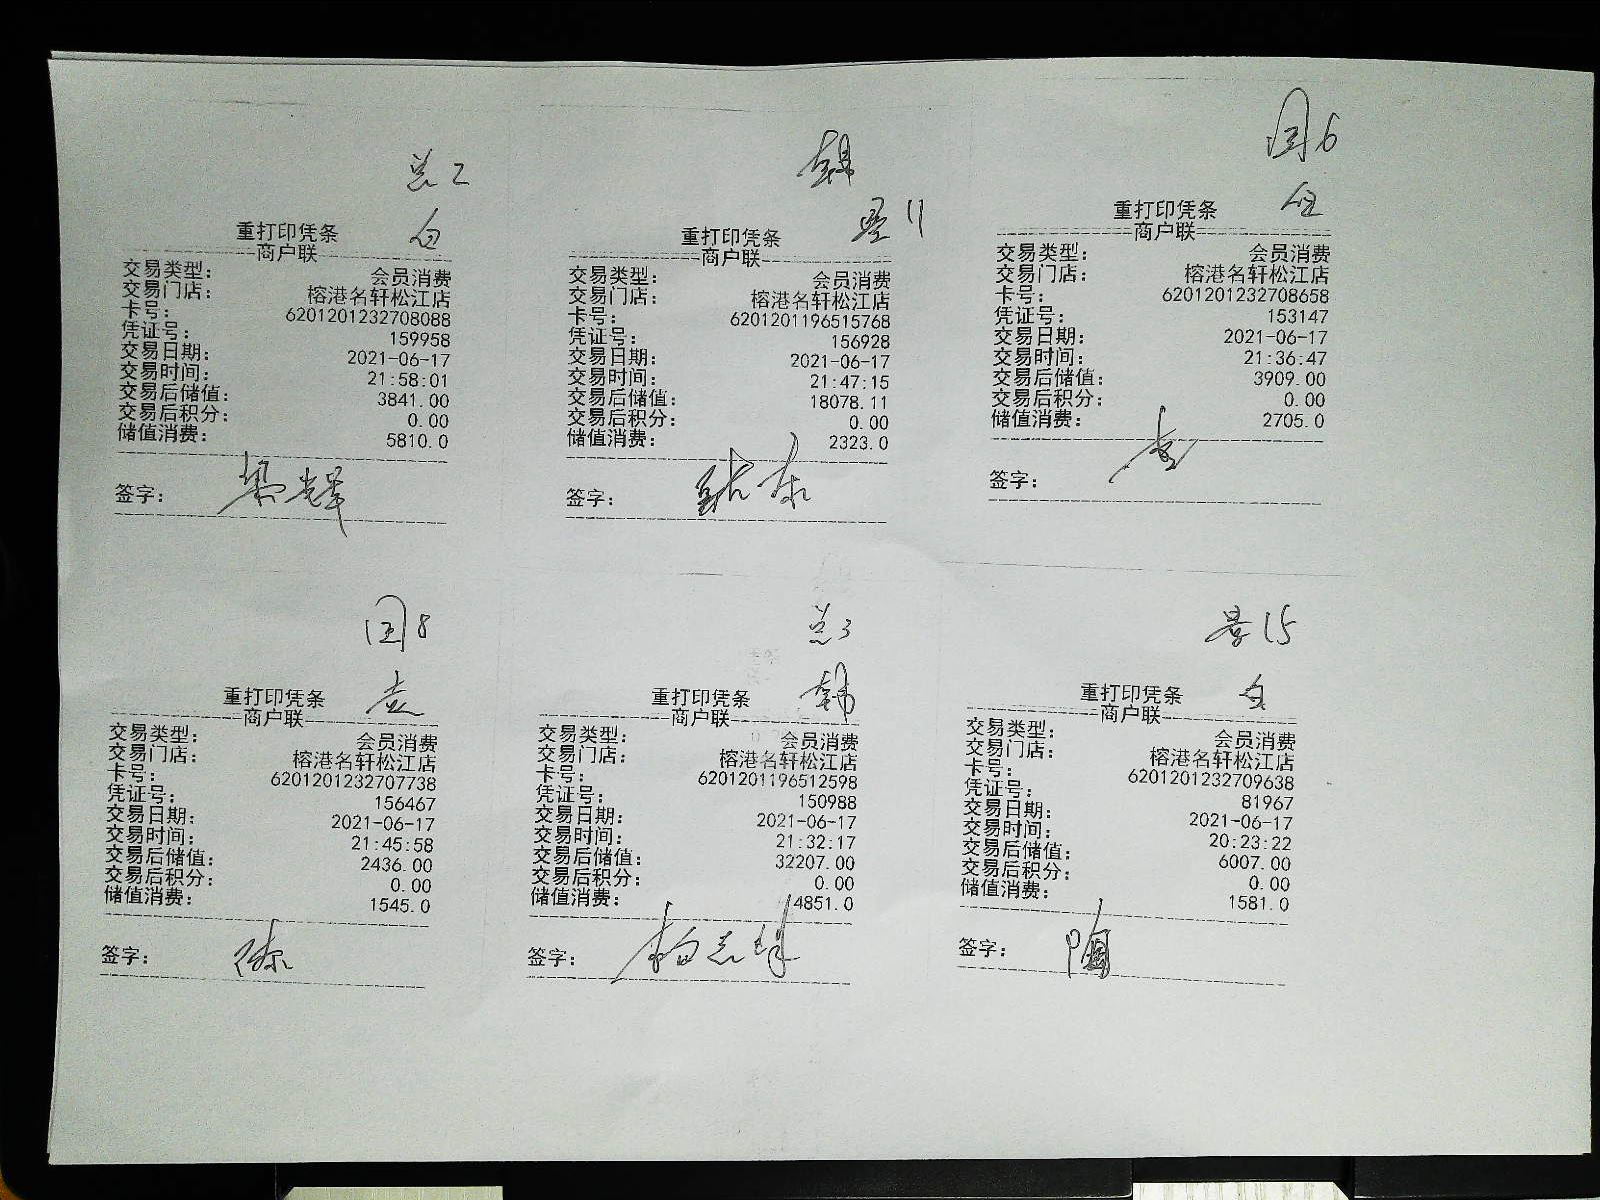 总2
白
重打印凭条
商户联
交易类型: 会员消费
交易门店: 榕港名轩松江店
卡号: 6201201232708088
凭证号: 159958
交易日期: 2021-06-17
交易时间: 21:58:01
交易后储值: 3841.00
交易后积分: 0.00
储值消费: 5810.0
签字:
韩
11
重打印凭条
商户联
交易类型: 会员消费
交易门店: 榕港名轩松江店
卡号: 6201201196515768
凭证号: 156928
交易日期: 2021-06-17
交易时间: 21:47:15
交易后储值: 18078.11
交易后积分: 0.00
储值消费: 2323.0
签字:
6
重打印凭条
商户联
交易类型: 会员消费
交易门店: 榕港名轩松江店
卡号: 6201201232708658
凭证号: 153147
交易日期: 2021-06-17
交易时间: 21:36:47
交易后储值: 3909.00
交易后积分: 0.00
储值消费: 2705.0
签字:
8
重打印凭条
商户联
交易类型: 会员消费
交易门店: 榕港名轩松江店
卡号: 6201201232707738
凭证号: 156467
交易日期: 2021-06-17
交易时间: 21:45:58
交易后储值: 2436.00
交易后积分: 0.00
储值消费: 1545.0
签字:
总3
韩
重打印凭条
商户联
交易类型: 会员消费
交易门店: 榕港名轩松江店
卡号: 6201201196512598
凭证号: 150988
交易日期: 2021-06-17
交易时间: 21:32:17
交易后储值: 32207.00
交易后积分: 0.00
储值消费: 4851.0
签字:
15
白
重打印凭条
商户联
交易类型: 会员消费
交易门店: 榕港名轩松江店
卡号: 6201201232709638
凭证号: 81967
交易日期: 2021-06-17
交易时间: 20:23:22
交易后储值: 6007.00
交易后积分: 0.00
储值消费: 1581.0
签字: 陶